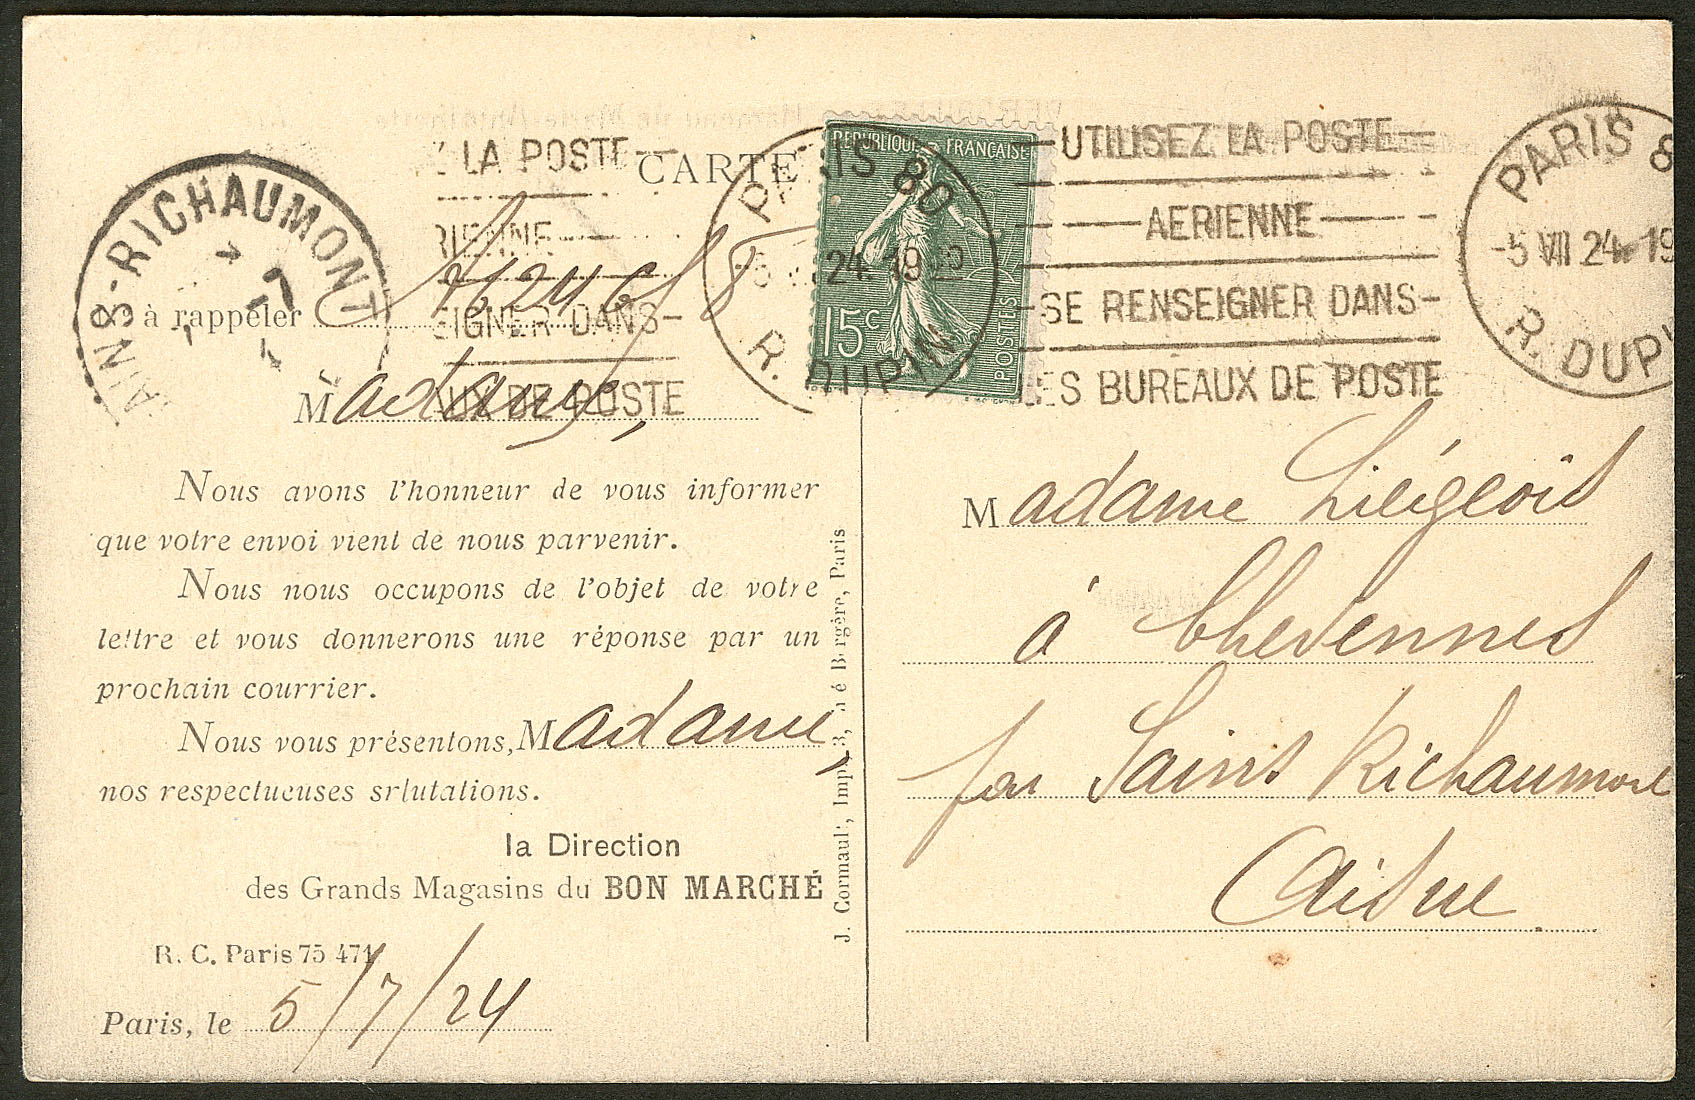 CARTE
LA POSTE
RIENNE
EIGNER DANS
AUX DE POSTE
SAINS-RICHAUMONT
7
PARIS 80
24 19
R. DUPIN
REPUBLIQUE FRANÇAISE
15c
POSTES
UTILISEZ LA POSTE
AERIENNE
SE RENSEIGNER DANS
LES BUREAUX DE POSTE
PARIS 8
-5 VII 24 19
R. DUPI
à rappeler
Madame,
Nous avons l'honneur de vous informer
que votre envoi vient de nous parvenir.
Nous nous occupons de l'objet de votre
lettre et vous donnerons une réponse par un
prochain courrier.
Nous vous présentons, Madame,
nos respectueuses salutations.
la Direction
des Grands Magasins du BON MARCHÉ
R. C. Paris 75 471
Paris, le 5/7/24
J. Cormault, Imp. 3, Bergère, Paris
Madame Liégeois
à Chevennes
par Sains Richaumont
Aisne